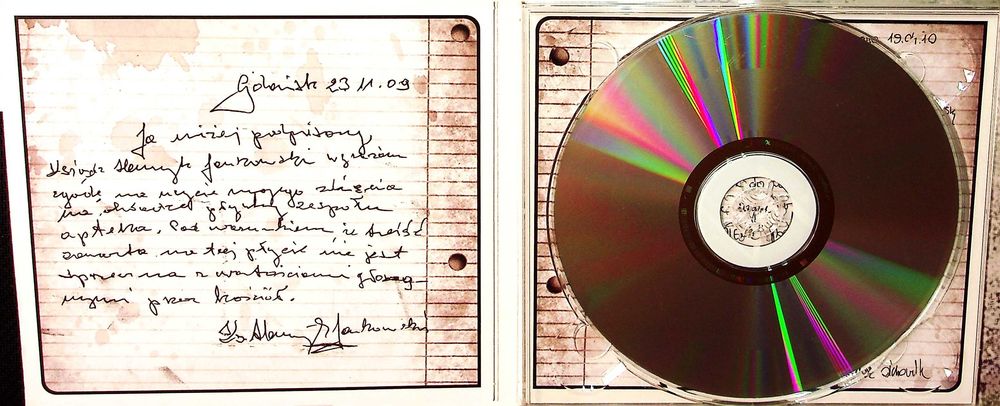 Gdańsk 23 11.09
Ja niżej podpisany
Ksiądz Henryk Jankowski wyrażam
zgodę na użycie mojego zdjęcia
na okładce płyty zespołu
apteka. Pod warunkiem że treść
zawarta na tej płycie nie jest
sprzeczna z wartościami głoszo-
nymi przez kościół.
Ks Henryk Jankowski
19.04.10